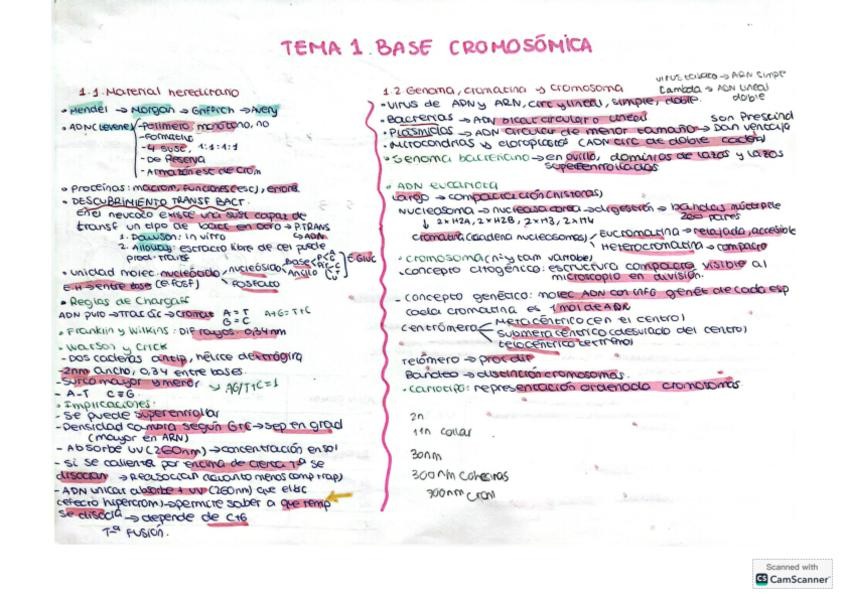 TEMA 1. BASE CROMOSÓMICA
1.1. Material hereditario
• Mendel → Morgan → Griffith → Avery
• ADN (Levene)
- Polímero monótono, no
- Formático
- 4 sust, 1:1:1:1
- De Reserva
- Armazón esc de crom
• Proteínas: macrom, funciones (esc), enorm
• DESCUBRIMIENTO TRANSF BACT.
en el neucoco existe una sust capaz de
transf un tipo de bact en otro → P.TRANS
1. Dawson: in vitro → ADN
2. Alloway: extracto libre de cel puede
prod. trans
• Unidad molec nucleótido
nucleósido
Base
E Gluc
Fosfato
E.H → entre base (e.fosf)
• Reglas de Chargaff
ADN puro → A=T
G=C
A+G=T+C
• Franklin y Wilkins: Dif rayos. 0,34nm
• Watson y Crick
- Dos cadenas antip, hélice dextrógira
- 2nm ancho, 0,34 entre bases
- Surco mayor y menor
- A-T C≡G
→ AG/T+C=1
• Implicaciones:
- Se puede superenrollar
- Densidad cambia según G+C → sep en grad
(mayor en ARN)
- Absorbe UV (260nm) → concentración en sol
- Si se calienta por encima de cierta Tª se
disocian → Reasocian
- ADN unicat absorbe + UV (260nm) que el bic
(efecto hipercrom) → permite saber a que temp
se disocia → depende de C+G
Tª FUSIÓN.
1.2. Genoma, cromatina y cromosoma
→ ARN simple
Lambda → ADN lineal
doble
• Virus de ADN y ARN, circ y lineal, simple, doble.
• Bacterias → ADN bicat circular o lineal
• Plásmidos → ADN circular de menor tamaño → Dan ventaja
son Prescind
• Mitocondrias y cloroplastos (ADN circ de doble cadena)
• Genoma bacteriano → en ovillo, dominios de lazos y lazos
superenrollados
• ADN eucariota
Largo → compactación (histonas)
Nucleosoma → nucleasa corta → digestión → bandas múltiplo de
200 pares
↓ 2xH2A, 2xH2B, 2xH3, 2xH4
Cromatina (cadena nucleosomas)
Eucromatina → relajada, accesible
Heterocromatina → compacto
• Cromosoma (nº y tam variable)
• Concepto citogénico: estructura compacta visible al
microscopio en división.
- Concepto genético: molec ADN con info genét de cada esp
cada cromatina es 1 mol de ADN
Centrómero
Metacéntrico (en el centro)
Submetacéntrico (desviado del centro)
Telocéntrico (extremo)
Telómero →
Bandeo → distinción cromosomas.
• Cariotipo: representación ordenada cromosomas
2n
11n collar
30nm
300nm
700nm crom
Scanned with
CS CamScanner